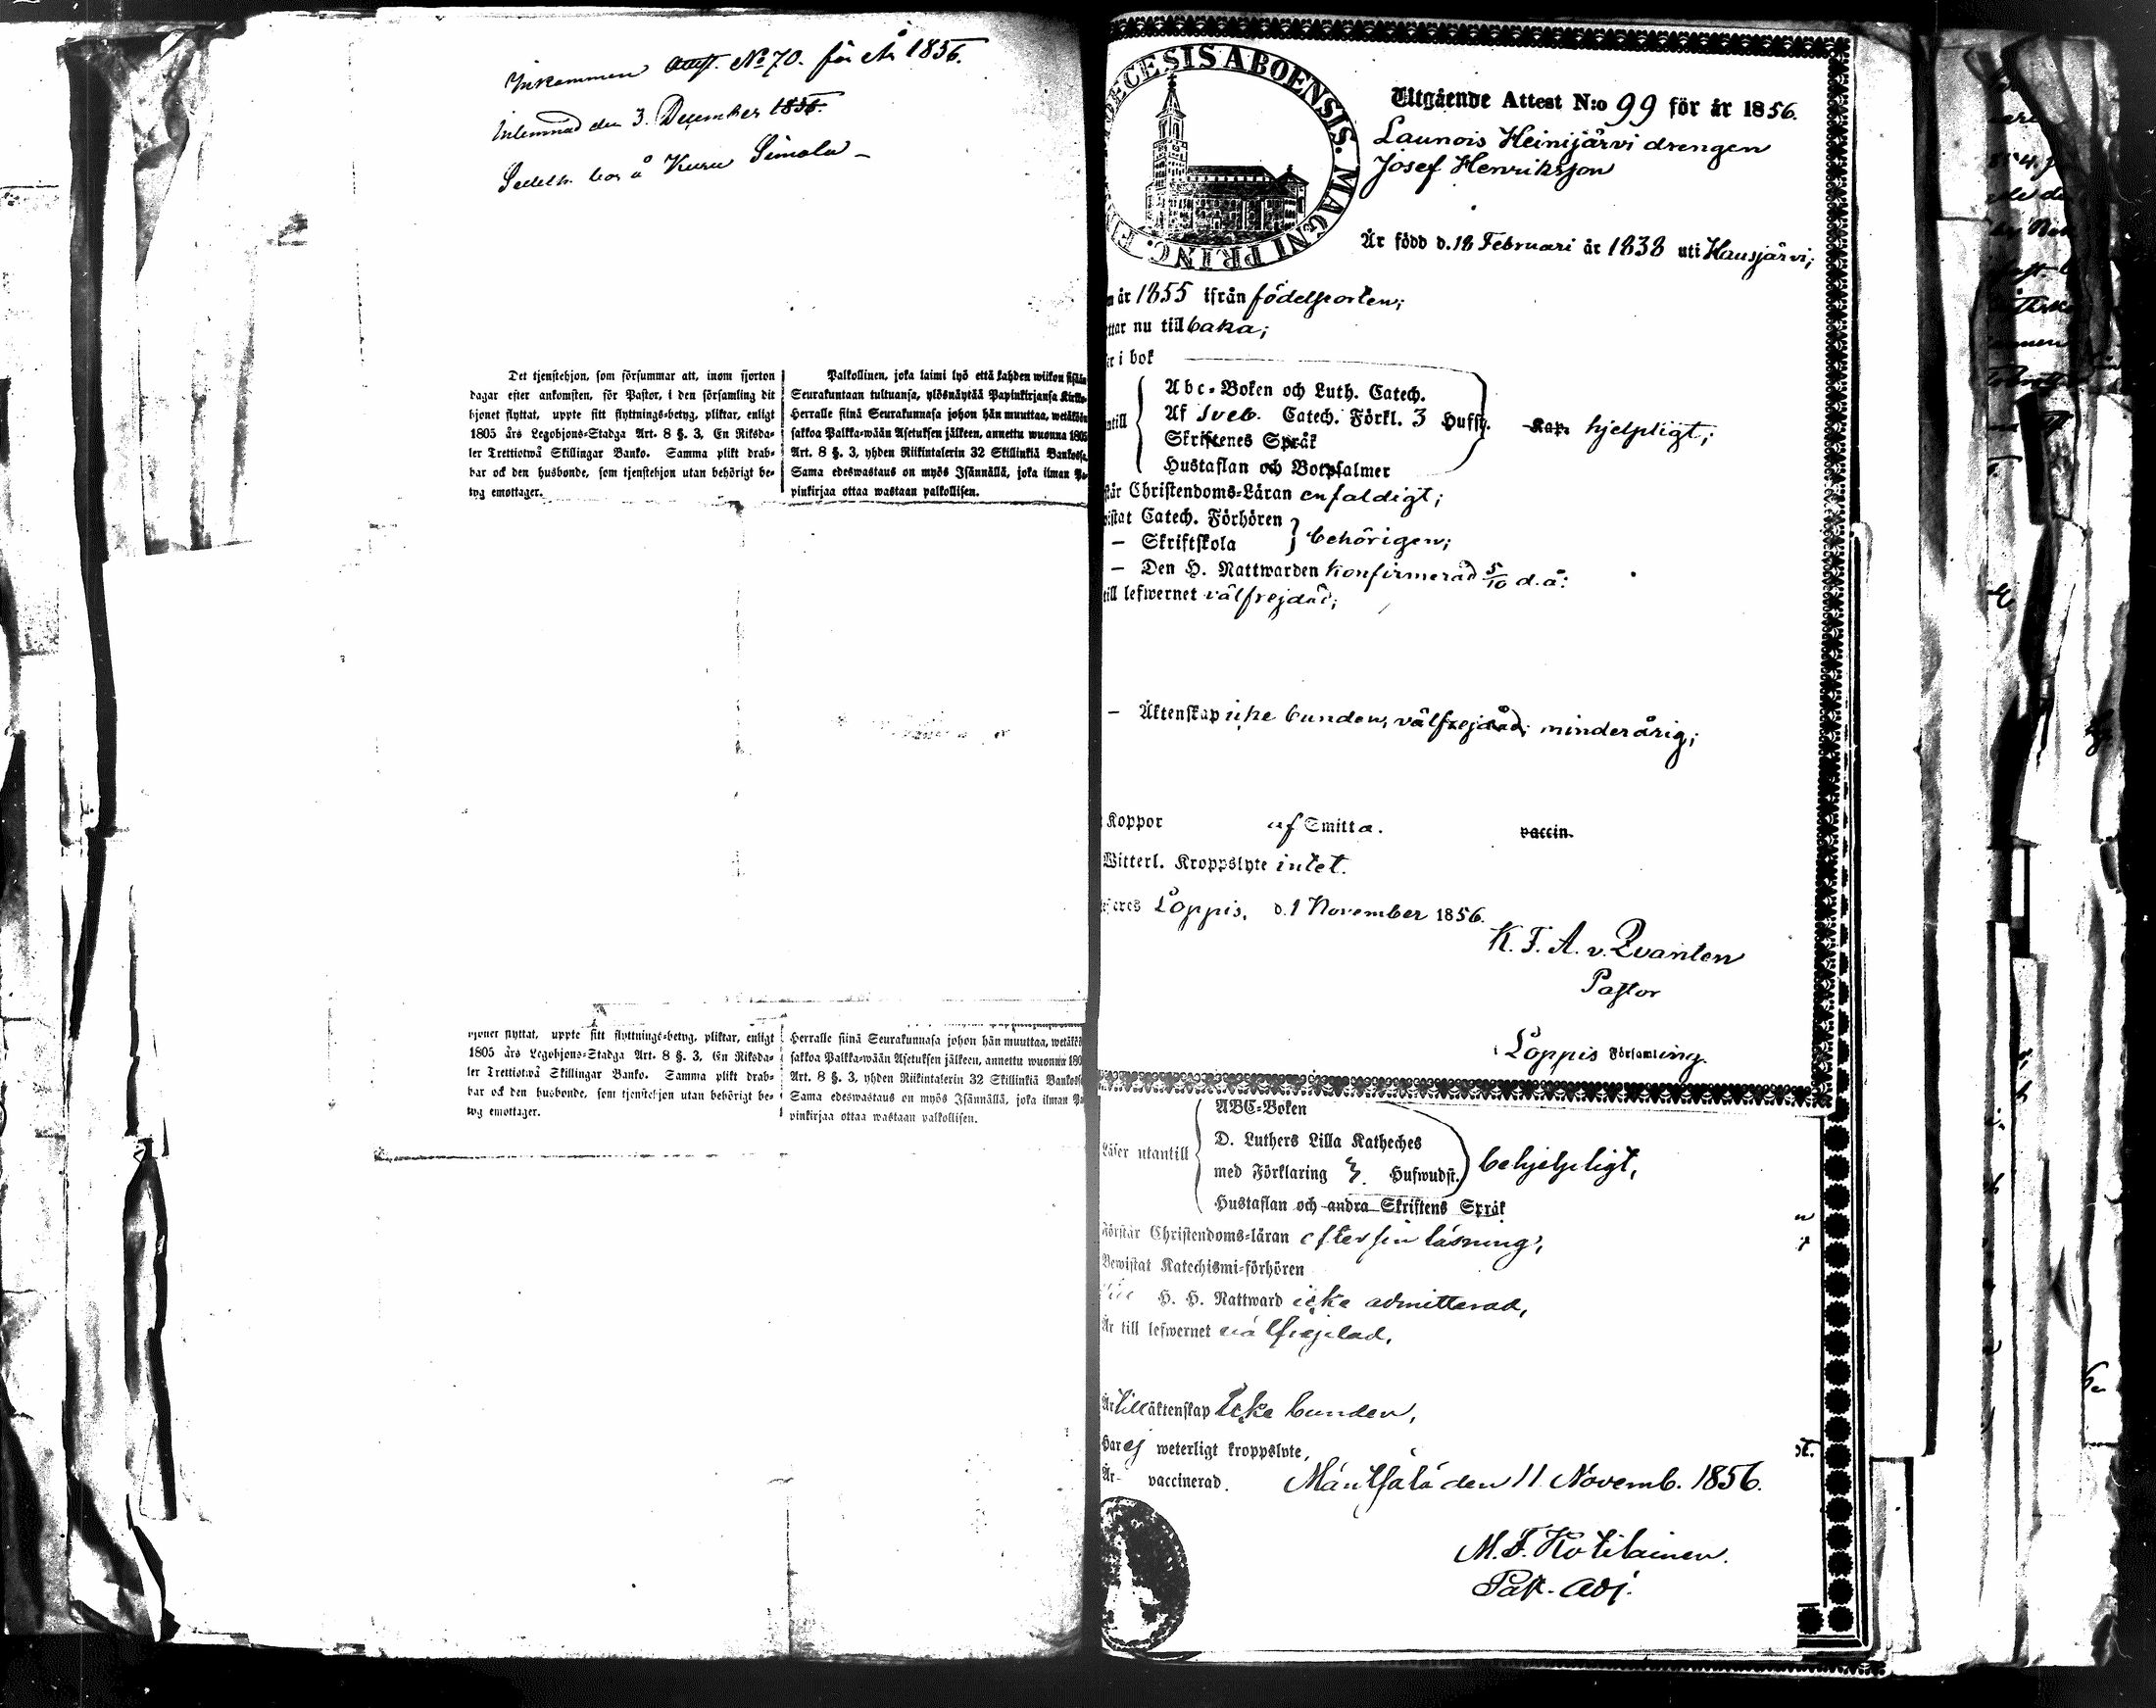 Inkommen Attest. No 70. för År 1856.
Inlemnad den 3. December 1856.
å Kuru Simola –
Det tjenstehjon, som försummar att, inom fjorton
dagar efter ankomsten, för Pastor, i den församling dit
hjonet flyttat, uppte sitt flyttnings-betyg, pliktar, enligt
1805 års Legohjons-Stadga Art. 8 §. 3, En Riksda-
ler Trettiotwå Skillingar Banko. Samma plikt drab-
bar ock den husbonde, som tjenstehjon utan behörigt be-
tyg emottager.
Palkollinen, joka laimi lyö että kahden wiikon sisään
Seurakuntaan tultuansa, ylösnäytää Papinkirjansa Kirkko-
Herralle siinä Seurakunnasa johon hän muuttaa, wetäköön
sakkoa Palkka-wään Asetuksen jälkeen, annettu wuonna 1805
Art. 8 §. 3, yhden Riikintalerin 32 Skillinkiä Bankossa.
Sama edeswastaus on myös Isännällä, joka ilman Pa-
pinkirjaa ottaa wastaan palkollisen.
hjonet flyttat, uppte sitt flyttnings-betyg, pliktar, enligt
1805 års Legohjons-Stadga Art. 8 §. 3, En Riksda-
ler Trettiotwå Skillingar Banko. Samma plikt drab-
bar ock den husbonde, som tjenstehjon utan behörigt be-
tyg emottager.
Herralle siinä Seurakunnasa johon hän muuttaa, wetäkö
sakkoa Palkka-wään Asetuksen jälkeen, annettu wuonna 180
Art. 8 §. 3, yhden Riikintalerin 32 Skillinkiä Bankoss
Sama edeswastaus on myös Isännällä, joka ilman Pa
pinkirjaa ottaa wastaan palkollisen.
ECESIS ABOENSIS. MAGNI PRINC. F
Utgående Attest N:o 99 för år 1856.
Launois Heinijärvi drengen
Josef Henriksson
Är född d. 18 Februari år 1838 uti Hausjärvi;
år 1855 ifrån födelseorten;
ttar nu tillbaka;
r i bok
Abc-Boken och Luth. Catech.
ntill Af Sveb. Catech. Förkl. 3 Hufst. Kap. hjelpligt;
Skriftenes Språk
Hustaflan och Botpsalmer
står Christendoms-Läran enfaldigt;
vistat Catech. Förhören
– Skriftskola behörigen;
– Den H. Nattwarden konfirmerad 5/10 d.å:
till lefwernet välfrejdad;
– Äktenskap icke bunden, välfrejdad; minderårig;
Koppor af Smitta. vaccin.
Witterl. Kroppslyte intet.
eres Loppis, d. 1 November 1856.
K. F. A. v. Qvanten
Pastor
Loppis Församling.
ABC-Boken
D. Luthers Lilla Katheches
Läser utantill med Förklaring 3. Hufwudst. behjelpligt,
Hustaflan och andra Skriftens Språk
Förstår Christendoms-läran efter sin läsning,
Bewistat Katechismi-förhören
H. H. Nattward icke admitterad,
Är till lefwernet välfrejdad,
Är till äktenskap icke bunden,
Har ej weterligt kroppslyte,
Är vaccinerad. Mäntsälä den 11 Novemb. 1856.
M. F. Kotilainen.
Past. Adj.